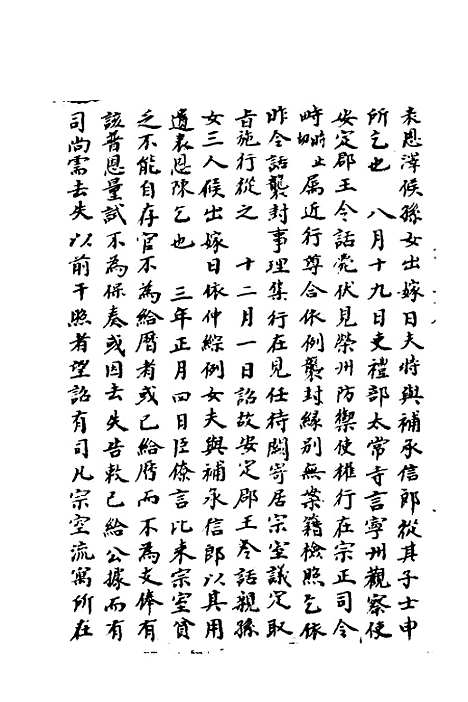 表恩澤候孫女出嫁日夫將與補承信郎從其子士申
所乞也　八月十九日吏禮部太常寺言寧州觀察使
安定郡王令話薨伏見榮州防禦使權行在宗正司令
時時止属近行尊合依例襲封緣別無案籍檢照乞依
昨令話襲封事理集行在見任待闕寄居宗室議定取
旨施行從之　十二月一日詔故安定郡王令話親孫
女三人候出嫁日依仲綜例女夫與補承信郎以其用
遺表恩陳乞也　三年正月四日臣僚言比來宗室貧
乏不能自存官不為給曆者或已給曆而不為支俸有
該普恩量試不為保奏或因去失告敕已給公據而有
司尚需去失以前干照者望詔有司凡宗室流寓所在